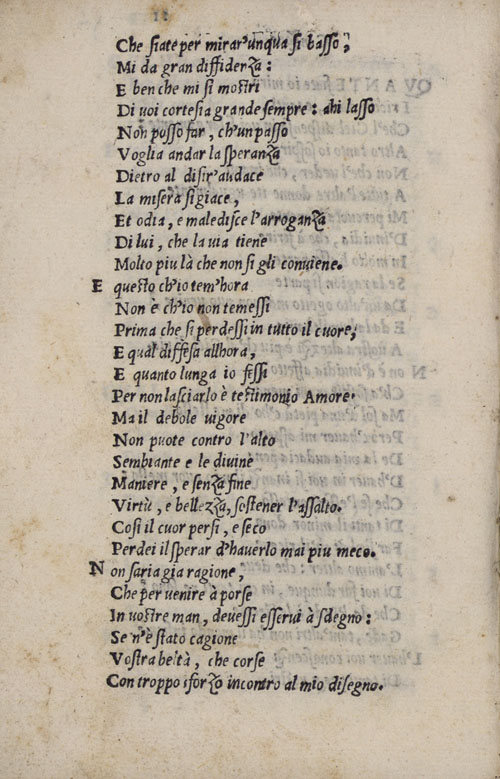 Che siate per mirar'unqua si basso,
Mi da gran diffidenza:
E ben che mi si mostri
Di uoi cortesia grande sempre: ahi lasso
Non posso far, ch'un passo
Voglia andar la speranza
Dietro al disir'audace
La misera si giace,
Et odia, e maledisce l'arroganza
Di lui, che la uia tiene
Molto piu là che non si gli conuiene.
E questo ch'io tem'hora
Non è ch'io non temessi
Prima che si perdessi in tutto il cuore,
E qual diffesa allhora,
E quanto lunga io fessi
Per non lasciarlo è testimonio Amore.
Ma il debole uigore
Non puote contro l'alto
Sembiante e le diuine
Maniere, e senza fine
Virtù, e bellezza, sostener l'assalto.
Cosi il cuor persi, e seco
Perdei il sperar d'hauerlo mai piu meco.
Non saria gia ragione,
Che per uenire à porse
In uostre man, deuessi esserui à sdegno:
Se n'è stato cagione
Vostra beltà, che corse
Con troppo sforzo incontro al mio disegno.